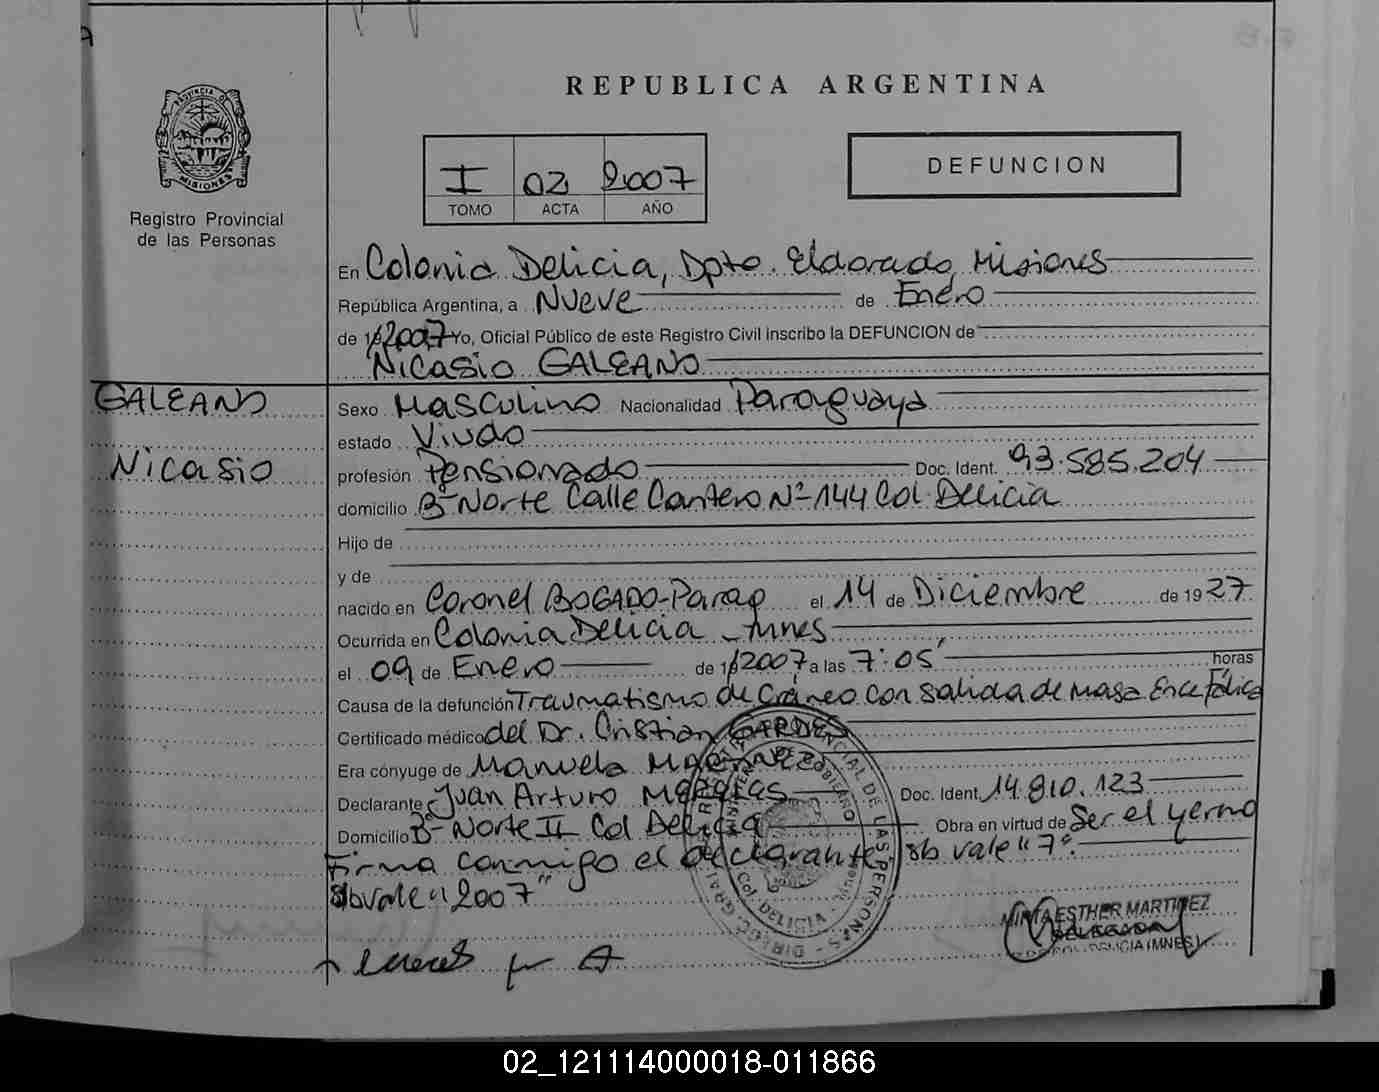 REPUBLICA ARGENTINA
PROVINCIA DE
MISIONES
Registro Provincial
de las Personas
I 02 2007
TOMO ACTA AÑO
DEFUNCION
En Colonia Delicia, Dpto. Eldorado, Misiones
República Argentina, a Nueve de Enero
de 2007 Yo, Oficial Público de este Registro Civil inscribo la DEFUNCION de
Nicasio GALEANO
GALEANO
Nicasio
Sexo Masculino Nacionalidad Paraguaya
estado Viudo
profesión Pensionado Doc. Ident. 93.585.204
domicilio Bº Norte Calle Cantero Nº 144 Col. Delicia
Hijo de
y de
nacido en Coronel BOGADO-Parag el 14 de Diciembre de 1927
Ocurrida en Colonia Delicia - Mnes
el 09 de Enero de 2007 a las 7:05' horas
Causa de la defunción Traumatismo de Cráneo con salida de masa Encefálica
Certificado médico del Dr. Cristian
Era cónyuge de Manuela
Declarante Juan Arturo Doc. Ident. 14.810.123
Domicilio Bº Norte II Col Delicia Obra en virtud de Ser el yerno
Firma conmigo el declarante, sb vale "7".
Sb vale "2007"
MIRTA ESTHER MARTINEZ
DELEGADA
DELICIA (MNES)
02_121114000018-011866